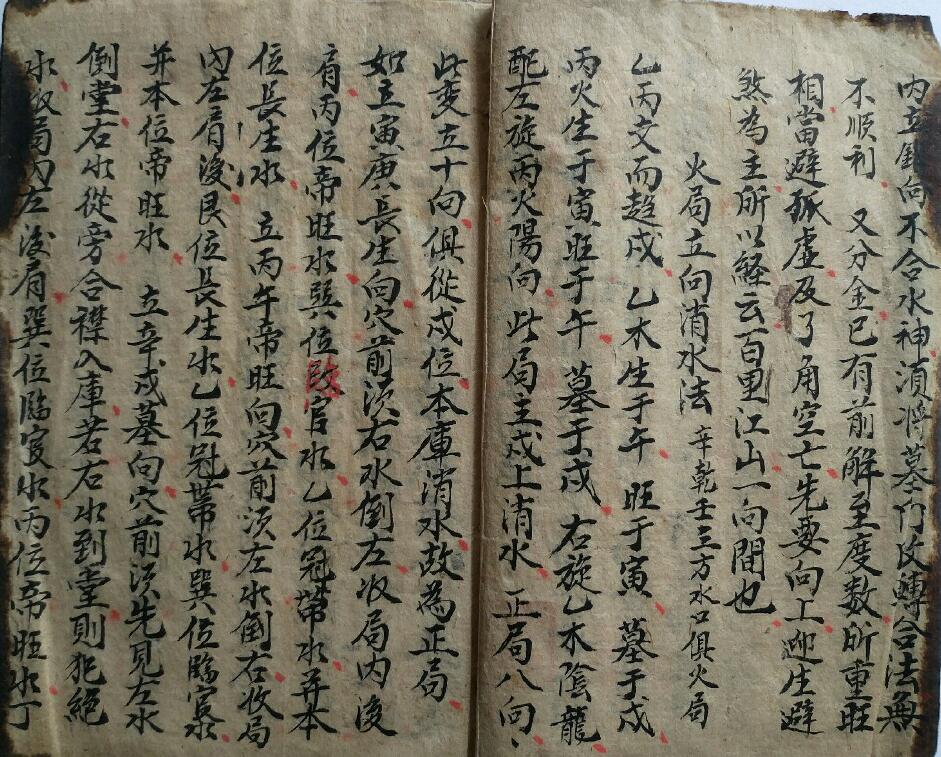 内立向不合水神須將墓門改轉合法無
不順利 又分金已有前解至度數所重旺
相當避孤虛及了角空亡先要向上迎生避
煞為主所以経云百里江山一向間也
火局立向消水法 辛乾壬三方水口俱火局
乙丙交而趍戍 乙木生于午 旺于寅 墓于戍
丙火生于寅旺于午 墓于戍 右旋乙木陰龍
配左旋丙火陽向 此局主戍上消水 正局八向
此变立十向俱從戍位本庫消水故為正局
如立寅庚長生向穴前須右水倒左收局内後
肩丙位帝旺水巽位臨官水乙位冠帶水并本
位長生水 立丙午帝旺向穴前须左水倒右收局
内左肩後艮位長生水乙位冠帶水巽位臨官水
并本位帝旺水 立辛戍墓向穴前須先見左水
倒堂右水從旁合襟入庫若右水到堂則犯絕
水收局内左後肩巽位臨官水丙位帝旺水丁